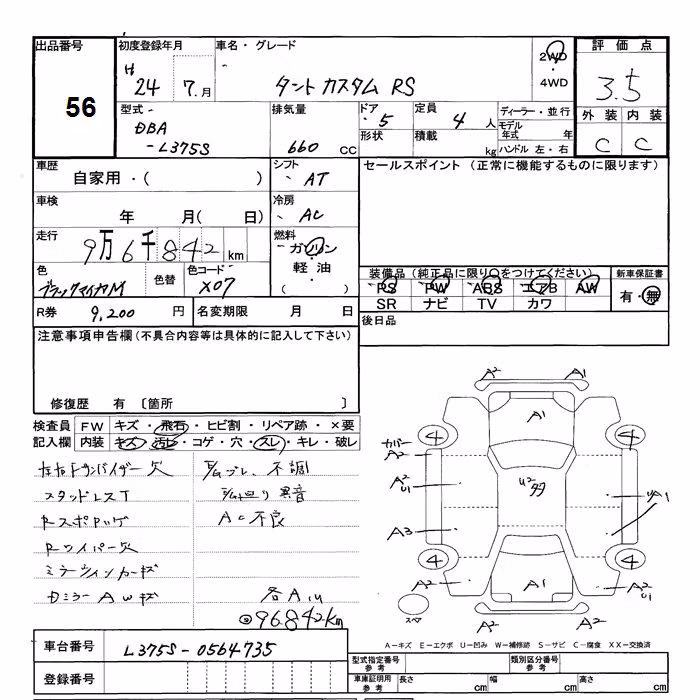 出品番号
56
初度登録年月
H 24年 7.月
車名・グレード
タント カスタム RS
2WD
4WD
評価点
3.5
外装 内装
C C
型式
DBA
-L375S
排気量
660 CC
ドア
5
形状
定員
4 人
積載
kg
ディーラー・並行
モデル年式 年
ハンドル 左・右
車歴
自家用・( )
シフト
AT
セールスポイント (正常に機能するものに限ります)
車検
年 月( 日)
冷房
AC
走行
9万6千842 km
燃料
ガソリン
軽油
( )
色
ブラックマイカM
色替
色コード
X07
装備品 (純正品に限り○をつけてください)
PS PW ABS エアB AW
SR ナビ TV カワ
新車保証書
有・無
R券 9,200 円
名変期限 月 日
後日品
注意事項申告欄(不具合内容等は具体的に記入して下さい)
修復歴 有 〔箇所 〕
検査員記入欄
FW キズ・飛石・ヒビ割・リペア跡・×要
内装 キズ・汚レ・コゲ・穴・スレ・キレ・破レ
左右ドアバイザー欠
スタッドレスT
Rワイパー欠
ミラーウィンカーキズ
AWキズ
不調
異音
AC不良
各AU1
96.842km
A2 A1
A1
4 4
カバー
A2
A2
U1
U2
A1
A3
4 4
A2
A1
A2
U1
スペア
A2 A2
A-キズ E-エクボ U-凹み W-補修跡 S-サビ C-腐食 XX-交換済
車台番号 L375S-0564735
登録番号
型式指定番号 参考
類別区分番号 参考
車庫証明用 参考
長さ cm
幅 cm
高さ cm